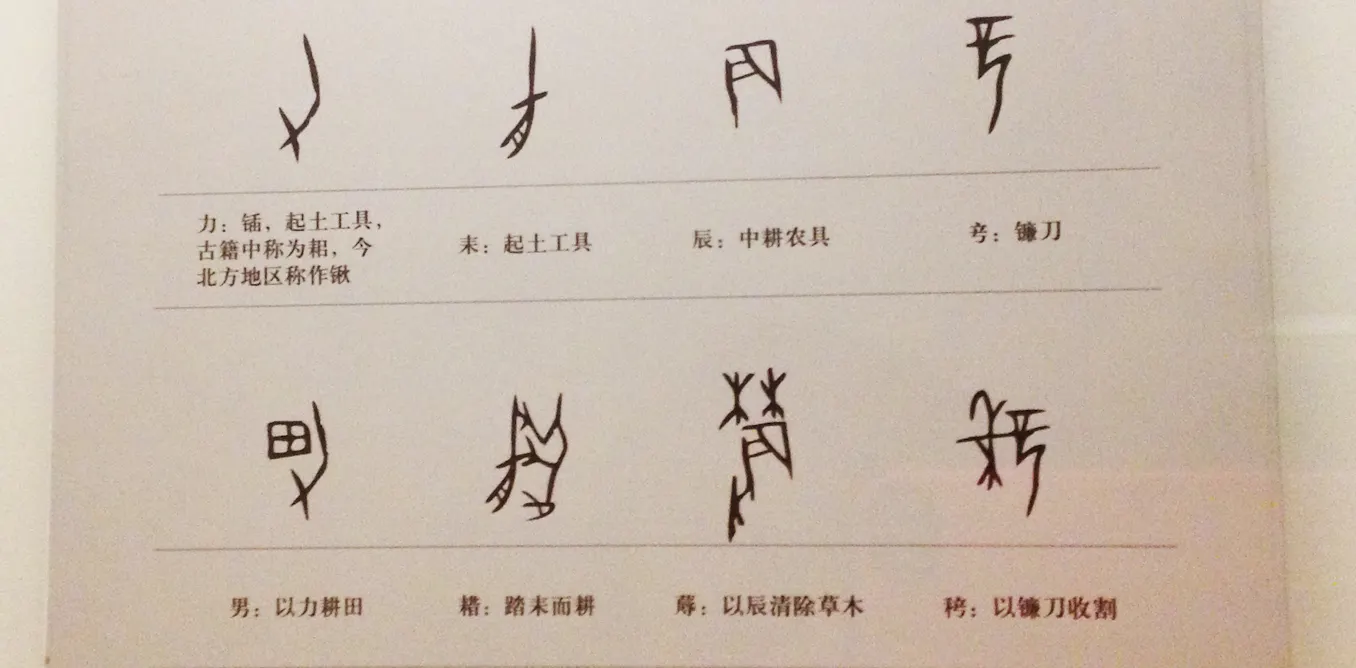 力：锸，起土工具，
古籍中称为耜，今
北方地区称作锹
耒：起土工具
辰：中耕农具
：镰刀
男：以力耕田
耤：踏耒而耕
蓐：以辰清除草木
：以镰刀收割